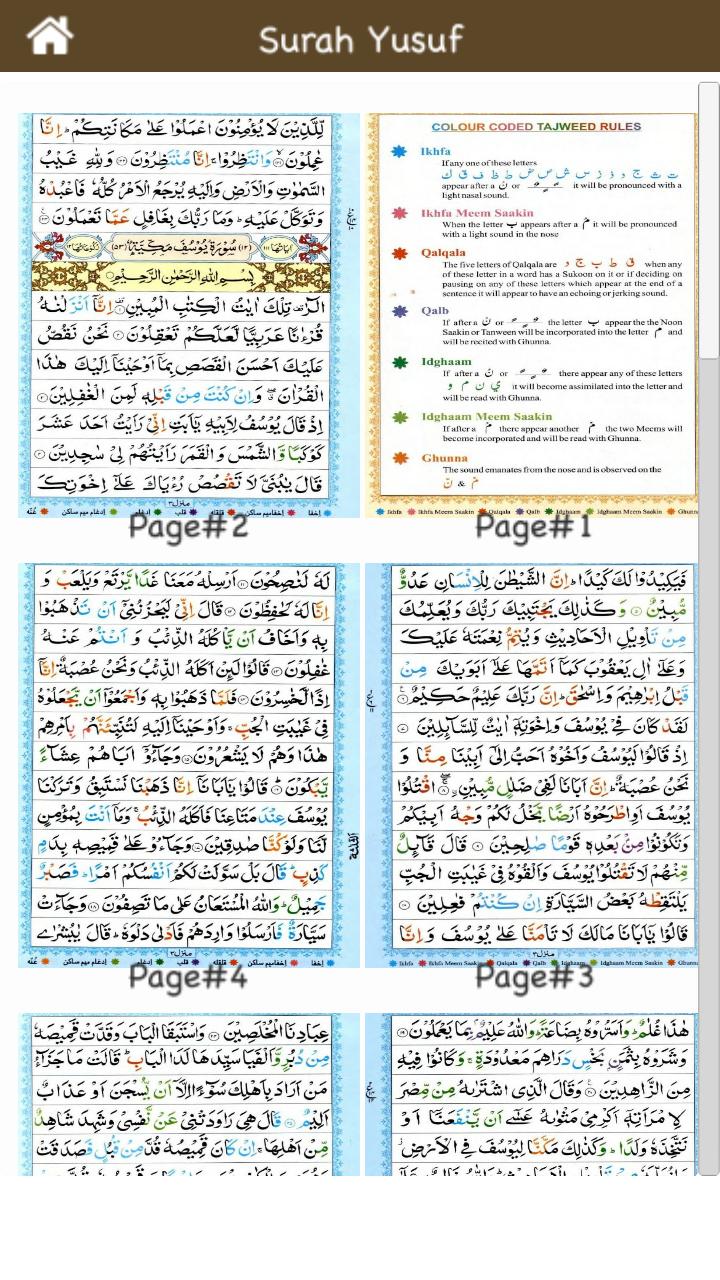 Surah Yusuf
COLOUR CODED TAJWEED RULES
Ikhfa
If any one of these letters
ت ث ج د ذ ز س ش ص ض ط ظ ف ق ك
appear after a نْ or it will be pronounced with a
light nasal sound.
Ikhfa Meem Saakin
When the letter ب appears after a مْ it will be pronounced
with a light sound in the nose
Qalqala
The five letters of Qalqala are ق ط ب ج د when any
of these letter in a word has a Sukoon on it or if deciding on
pausing on any of these letters which appear at the end of a
sentence it will appear to have an echoing or jerking sound.
Qalb
If after a نْ or the letter ب appear the the Noon
Saakin or Tanween will be incorporated into the letter م and
will be recited with Ghunna.
Idghaam
If after a نْ or there appear any of these letters
ي ن م و it will become assimilated into the letter and
will be read with Ghunna.
Idghaam Meem Saakin
If after a مْ there appear another م the two Meems will
become incorporated and will be read with Ghunna.
Ghunna
The sound emanates from the nose and is observed on the
نّ & مّ
Ikhfa Ikhfa Meem Saakin Qalqala Qalb Idghaam Idghaam Meem Saakin Ghunna
Page#1
لِّلَّذِيْنَ لَا يُؤْمِنُوْنَ اعْمَلُوْا عَلٰى مَكَانَتِكُمْ اِنَّا
عٰمِلُوْنَ وَانْتَظِرُوْا اِنَّا مُنْتَظِرُوْنَ وَلِلّٰهِ غَيْبُ
السَّمٰوٰتِ وَالْاَرْضِ وَاِلَيْهِ يُرْجَعُ الْاَمْرُ كُلُّهٗ فَاعْبُدْهُ
وَتَوَكَّلْ عَلَيْهِ وَمَا رَبُّكَ بِغَافِلٍ عَمَّا تَعْمَلُوْنَ
(١٢) سُوْرَةُ يُوْسُفَ مَكِّيَّةٌ (٥٣)
بِسْمِ اللّٰهِ الرَّحْمٰنِ الرَّحِيْمِ
الٓرٰ تِلْكَ اٰيٰتُ الْكِتٰبِ الْمُبِيْنِ اِنَّا اَنْزَلْنٰهُ
قُرْءٰنًا عَرَبِيًّا لَّعَلَّكُمْ تَعْقِلُوْنَ نَحْنُ نَقُصُّ
عَلَيْكَ اَحْسَنَ الْقَصَصِ بِمَآ اَوْحَيْنَآ اِلَيْكَ هٰذَا
الْقُرْاٰنَ وَاِنْ كُنْتَ مِنْ قَبْلِهٖ لَمِنَ الْغٰفِلِيْنَ
اِذْ قَالَ يُوْسُفُ لِاَبِيْهِ يٰٓاَبَتِ اِنِّيْ رَاَيْتُ اَحَدَ عَشَرَ
كَوْكَبًا وَّالشَّمْسَ وَالْقَمَرَ رَاَيْتُهُمْ لِيْ سٰجِدِيْنَ
قَالَ يٰبُنَيَّ لَا تَقْصُصْ رُءْيَاكَ عَلٰٓى اِخْوَتِكَ
منزل٣
اخفا اخفا ميم ساكن قلقله قلب ادغام ادغام ميم ساكن غنّه
Page#2
فَيَكِيْدُوْا لَكَ كَيْدًا اِنَّ الشَّيْطٰنَ لِلْاِنْسَانِ عَدُوٌّ
مُّبِيْنٌ وَكَذٰلِكَ يَجْتَبِيْكَ رَبُّكَ وَيُعَلِّمُكَ
مِنْ تَاْوِيْلِ الْاَحَادِيْثِ وَيُتِمُّ نِعْمَتَهٗ عَلَيْكَ
وَعَلٰٓى اٰلِ يَعْقُوْبَ كَمَآ اَتَمَّهَا عَلٰٓى اَبَوَيْكَ مِنْ
قَبْلُ اِبْرٰهِيْمَ وَاِسْحٰقَ اِنَّ رَبَّكَ عَلِيْمٌ حَكِيْمٌ
لَقَدْ كَانَ فِيْ يُوْسُفَ وَاِخْوَتِهٖٓ اٰيٰتٌ لِّلسَّآئِلِيْنَ
اِذْ قَالُوْا لَيُوْسُفُ وَاَخُوْهُ اَحَبُّ اِلٰٓى اَبِيْنَا مِنَّا وَ
نَحْنُ عُصْبَةٌ اِنَّ اَبَانَا لَفِيْ ضَلٰلٍ مُّبِيْنٍ اقْتُلُوْا
يُوْسُفَ اَوِ اطْرَحُوْهُ اَرْضًا يَّخْلُ لَكُمْ وَجْهُ اَبِيْكُمْ
وَتَكُوْنُوْا مِنْۢ بَعْدِهٖ قَوْمًا صٰلِحِيْنَ قَالَ قَآئِلٌ
مِّنْهُمْ لَا تَقْتُلُوْا يُوْسُفَ وَاَلْقُوْهُ فِيْ غَيٰبَتِ الْجُبِّ
يَلْتَقِطْهُ بَعْضُ السَّيَّارَةِ اِنْ كُنْتُمْ فٰعِلِيْنَ
قَالُوْا يٰٓاَبَانَا مَالَكَ لَا تَاْمَنَّا عَلٰى يُوْسُفَ وَاِنَّا
منزل٣
Ikhfa Ikhfa Meem Saakin Qalqala Qalb Idghaam Idghaam Meem Saakin Ghunna
Page#3
لَهٗ لَنٰصِحُوْنَ اَرْسِلْهُ مَعَنَا غَدًا يَّرْتَعْ وَيَلْعَبْ وَ
اِنَّا لَهٗ لَحٰفِظُوْنَ قَالَ اِنِّيْ لَيَحْزُنُنِيْٓ اَنْ تَذْهَبُوْا
بِهٖ وَاَخَافُ اَنْ يَّاْكُلَهُ الذِّئْبُ وَاَنْتُمْ عَنْهُ
غٰفِلُوْنَ قَالُوْا لَئِنْ اَكَلَهُ الذِّئْبُ وَنَحْنُ عُصْبَةٌ اِنَّآ
اِذًا لَّخٰسِرُوْنَ فَلَمَّا ذَهَبُوْا بِهٖ وَاَجْمَعُوْٓا اَنْ يَّجْعَلُوْهُ
فِيْ غَيٰبَتِ الْجُبِّ وَاَوْحَيْنَآ اِلَيْهِ لَتُنَبِّئَنَّهُمْ بِاَمْرِهِمْ
هٰذَا وَهُمْ لَا يَشْعُرُوْنَ وَجَآءُوْٓ اَبَاهُمْ عِشَآءً
يَّبْكُوْنَ قَالُوْا يٰٓاَبَانَآ اِنَّا ذَهَبْنَا نَسْتَبِقُ وَتَرَكْنَا
يُوْسُفَ عِنْدَ مَتَاعِنَا فَاَكَلَهُ الذِّئْبُ وَمَآ اَنْتَ بِمُؤْمِنٍ
لَّنَا وَلَوْ كُنَّا صٰدِقِيْنَ وَجَآءُوْ عَلٰى قَمِيْصِهٖ بِدَمٍ
كَذِبٍ قَالَ بَلْ سَوَّلَتْ لَكُمْ اَنْفُسُكُمْ اَمْرًا فَصَبْرٌ
جَمِيْلٌ وَاللّٰهُ الْمُسْتَعَانُ عَلٰى مَا تَصِفُوْنَ وَجَآءَتْ
سَيَّارَةٌ فَاَرْسَلُوْا وَارِدَهُمْ فَاَدْلٰى دَلْوَهٗ قَالَ يٰبُشْرٰى
منزل٣
اخفا اخفا ميم ساكن قلقله قلب ادغام ادغام ميم ساكن غنّه
Page#4
هٰذَا غُلٰمٌ وَاَسَرُّوْهُ بِضَاعَةً وَاللّٰهُ عَلِيْمٌ بِمَا يَعْمَلُوْنَ
وَشَرَوْهُ بِثَمَنٍ بَخْسٍ دَرَاهِمَ مَعْدُوْدَةٍ وَكَانُوْا فِيْهِ
مِنَ الزَّاهِدِيْنَ وَقَالَ الَّذِى اشْتَرٰىهُ مِنْ مِّصْرَ
لِامْرَاَتِهٖٓ اَكْرِمِيْ مَثْوٰىهُ عَسٰٓى اَنْ يَّنْفَعَنَآ اَوْ
نَتَّخِذَهٗ وَلَدًا وَكَذٰلِكَ مَكَّنَّا لِيُوْسُفَ فِى الْاَرْضِ
عِبَادِنَا الْمُخْلَصِيْنَ وَاسْتَبَقَا الْبَابَ وَقَدَّتْ قَمِيْصَهٗ
مِنْ دُبُرٍ وَّاَلْفَيَا سَيِّدَهَا لَدَا الْبَابِ قَالَتْ مَا جَزَآءُ
مَنْ اَرَادَ بِاَهْلِكَ سُوْٓءًا اِلَّآ اَنْ يُّسْجَنَ اَوْ عَذَابٌ
اَلِيْمٌ قَالَ هِيَ رَاوَدَتْنِيْ عَنْ نَّفْسِيْ وَشَهِدَ شَاهِدٌ
مِّنْ اَهْلِهَا اِنْ كَانَ قَمِيْصُهٗ قُدَّ مِنْ قُبُلٍ فَصَدَقَتْ